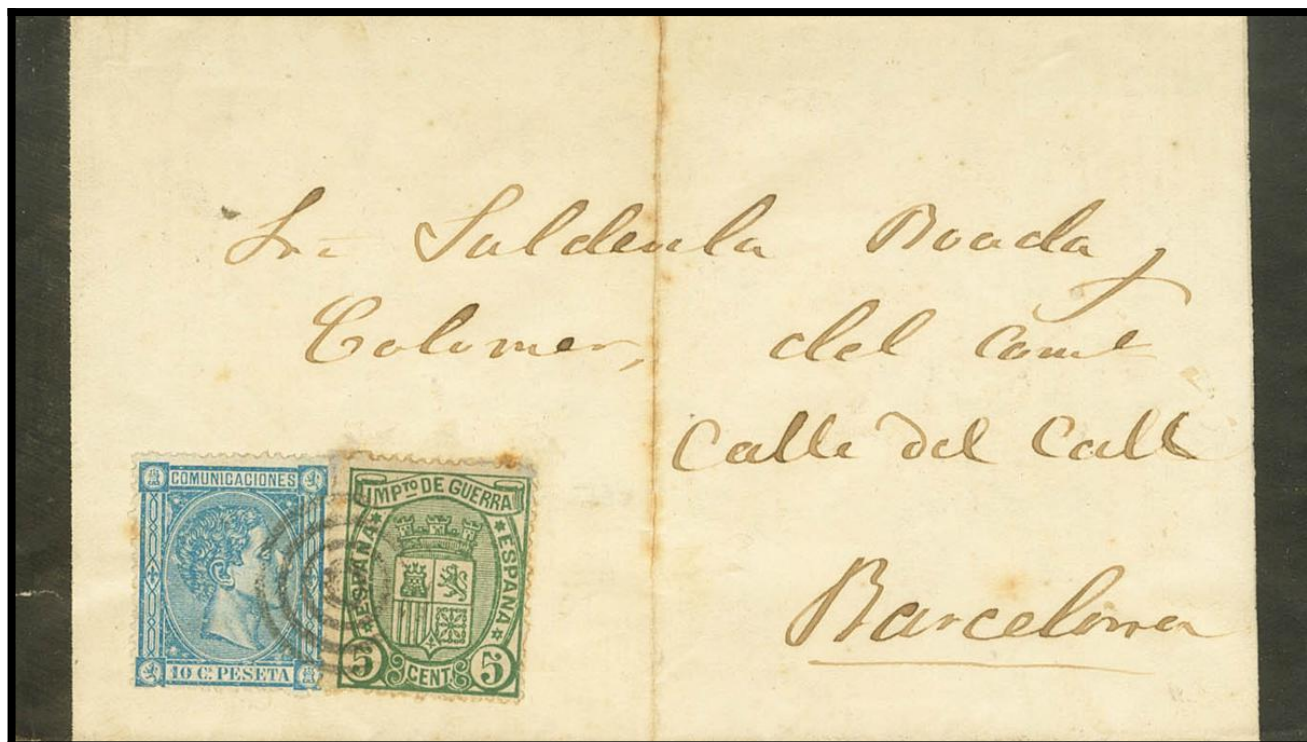 Colomer, del Com.
Calle del Call
Barcelona
COMUNICACIONES
10 C. PESETA
IMPTO DE GUERRA
ESPAÑA
ESPAÑA
5 CENT. 5